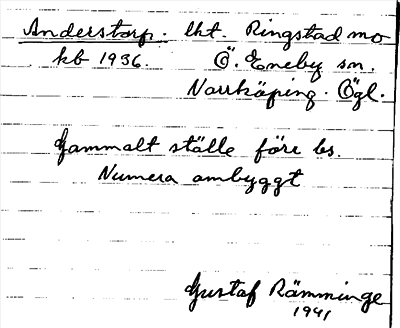 Anderstorp. lht. Ringstad mo
kb 1936. Ö. Eneby sn.
Norrköping. Ögl.
Gammalt ställe före ls.
Numera ombyggt
Gustaf Rämminge
1941